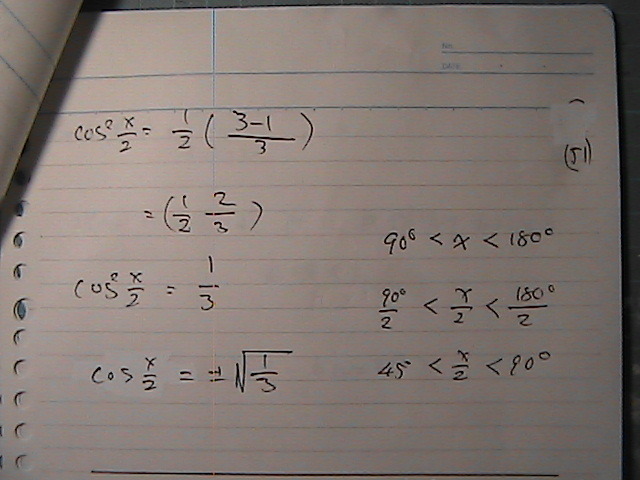 No.
DATE
cos² x/2 = 1/2 ( 3-1/3 )
(51)
= ( 1/2 2/3 )
90° < x < 180°
cos² x/2 = 1/3
90°/2 < x/2 < 180°/2
cos x/2 = ± √1/3
45 < x/2 < 90°